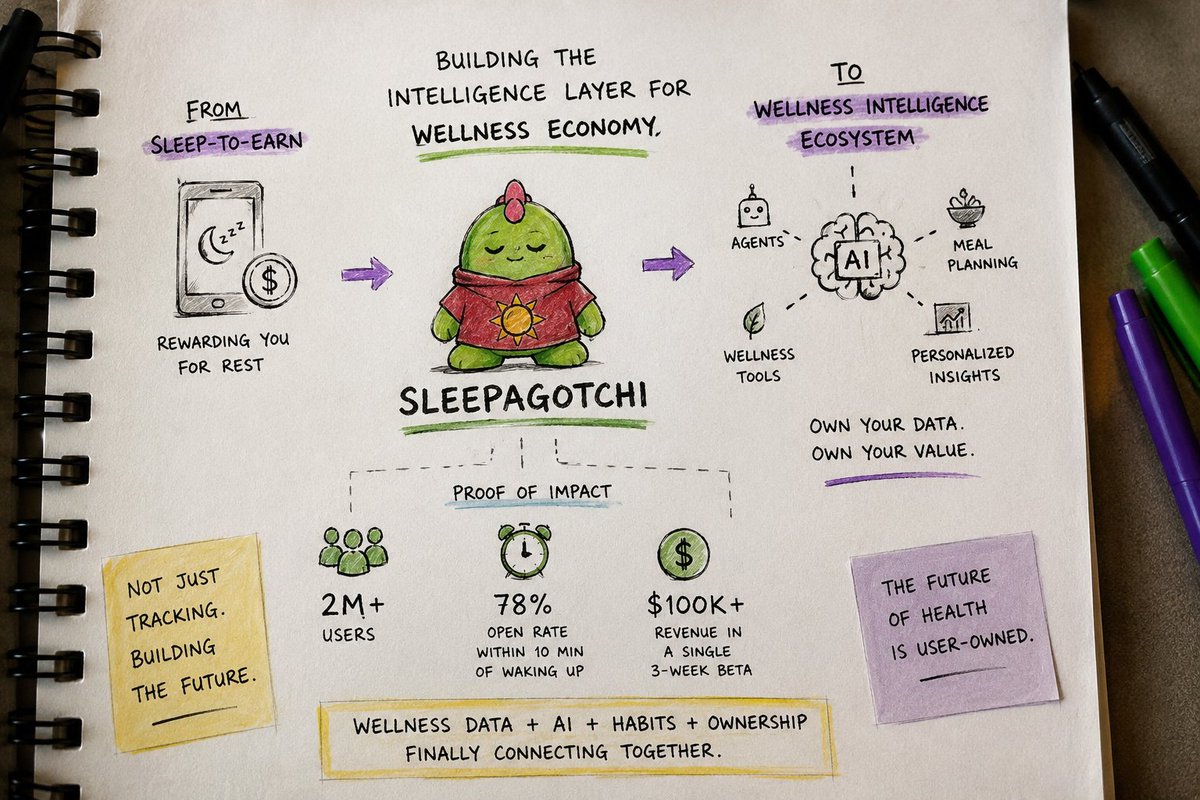 BUILDING THE
INTELLIGENCE LAYER FOR
WELLNESS ECONOMY.
FROM
SLEEP-TO-EARN
zzz
$
REWARDING YOU
FOR REST
SLEEPAGOTCHI
TO
WELLNESS INTELLIGENCE
ECOSYSTEM
AGENTS
AI
MEAL
PLANNING
WELLNESS
TOOLS
PERSONALIZED
INSIGHTS
OWN YOUR DATA.
OWN YOUR VALUE.
PROOF OF IMPACT
2M+
USERS
78%
OPEN RATE
WITHIN 10 MIN
OF WAKING UP
$
$100K+
REVENUE IN
A SINGLE
3-WEEK BETA
NOT JUST
TRACKING.
BUILDING
THE FUTURE.
THE FUTURE
OF HEALTH
IS USER-OWNED.
WELLNESS DATA + AI + HABITS + OWNERSHIP
FINALLY CONNECTING TOGETHER.